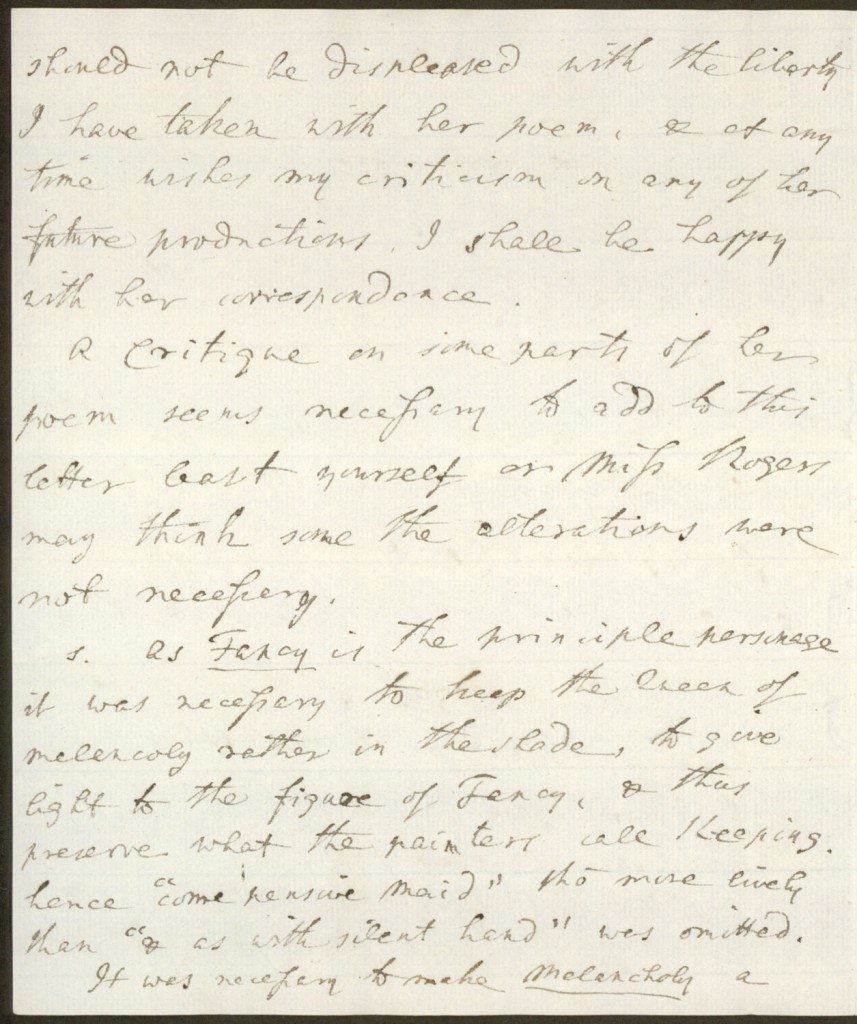 should not be displeased with the liberty
I have taken with her poem, & at any
time wishes my criticism on any of her
future productions, I shall be happy
with her correspondence.
A Critique on some parts of her
poem seems necessary to add to this
letter least yourself or Miss Rogers
may think some the alterations were
not necessary.
s. As Fancy is the principle personage
it was necessary to keep the Queen of
melencoly rather in the shade, to give
light to the figure of Fancy, & thus
preserve what the painters call Keeping.
hence "come pensive Maid" tho more lively
than "& as with silent hand" was omitted.
It was necessary to make Melancholy a